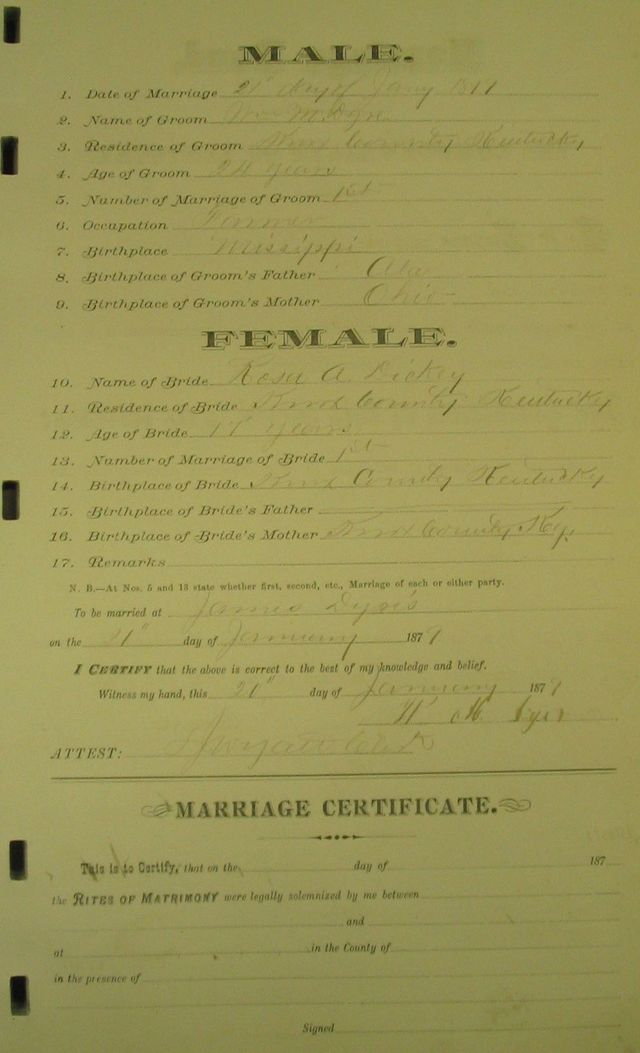 MALE.
1. Date of Marriage 21" day of Jany 1879
2. Name of Groom Wm M. Dyre
3. Residence of Groom Knox County Kentucky
4. Age of Groom 24 years
5. Number of Marriage of Groom 1st
6. Occupation Farmer
7. Birthplace Missippi
8. Birthplace of Groom's Father Ala
9. Birthplace of Groom's Mother Ohio
FEMALE.
10. Name of Bride Rosa A. Dickey
11. Residence of Bride Knox County Kentucky
12. Age of Bride years
13. Number of Marriage of Bride 1st
14. Birthplace of Bride Knox County Kentucky
15. Birthplace of Bride's Father
16. Birthplace of Bride's Mother Knox County Ky.
17. Remarks
N. B.—At Nos. 5 and 13 state whether first, second, etc., Marriage of each or either party.
To be married at James Dyre's
on the 21" day of January 1879
I CERTIFY that the above is correct to the best of my knowledge and belief.
Witness my hand, this day of January 1879
W M
ATTEST: Clerk
MARRIAGE CERTIFICATE.
This is to Certify, that on the day of 187
the RITES OF MATRIMONY were legally solemnized by me between
and
at in the County of
in the presence of
Signed